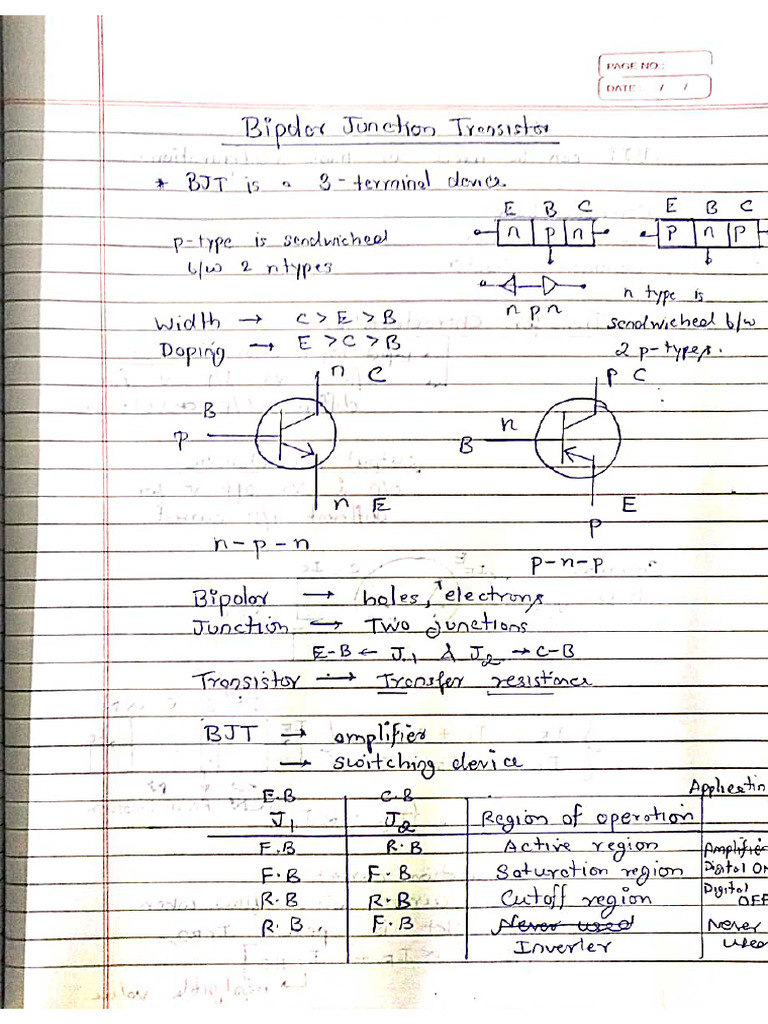 PAGE NO.:
DATE: / /
Bipolar Junction Transistor
* BJT is a 3-terminal device.
E B C
n p n
E B C
p n p
p-type is sandwiched
b/w 2 n types
n p n
n type is
sandwiched b/w
2 p-types.
Width → C > E > B
Doping → E > C > B
n C
B
p
n E
n-p-n
p C
n
B
E
p
p-n-p
Bipolar → holes, electrons
Junction → Two junctions
E-B ← J1 & J2 → C-B
Transistor → Transfer resistance
BJT → amplifier
→ switching device
E.B C.B Applicatin
J1 J2 Region of operation
F.B R.B Active region Amplifie
F.B F.B Saturation region Digital ON
R.B R.B Cutoff region Digital OFF
R.B F.B Never used Never
Inverter used